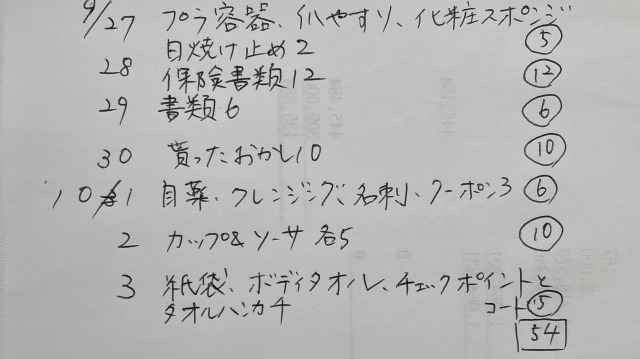 9/27 プラ容器、イルやすり、化粧スポンジ
日焼け止め2 ⑤
28 保険書類12 ⑫
29 書類6 ⑥
30 貰ったおかし10 ⑩
10/1 目薬、クレンジング、名刺、クーポン3 ⑥
2 カップ&ソーサ 各5 ⑩
3 紙袋、ボディタオル、チェックポイントと
タオルハンカチ コート⑤
54